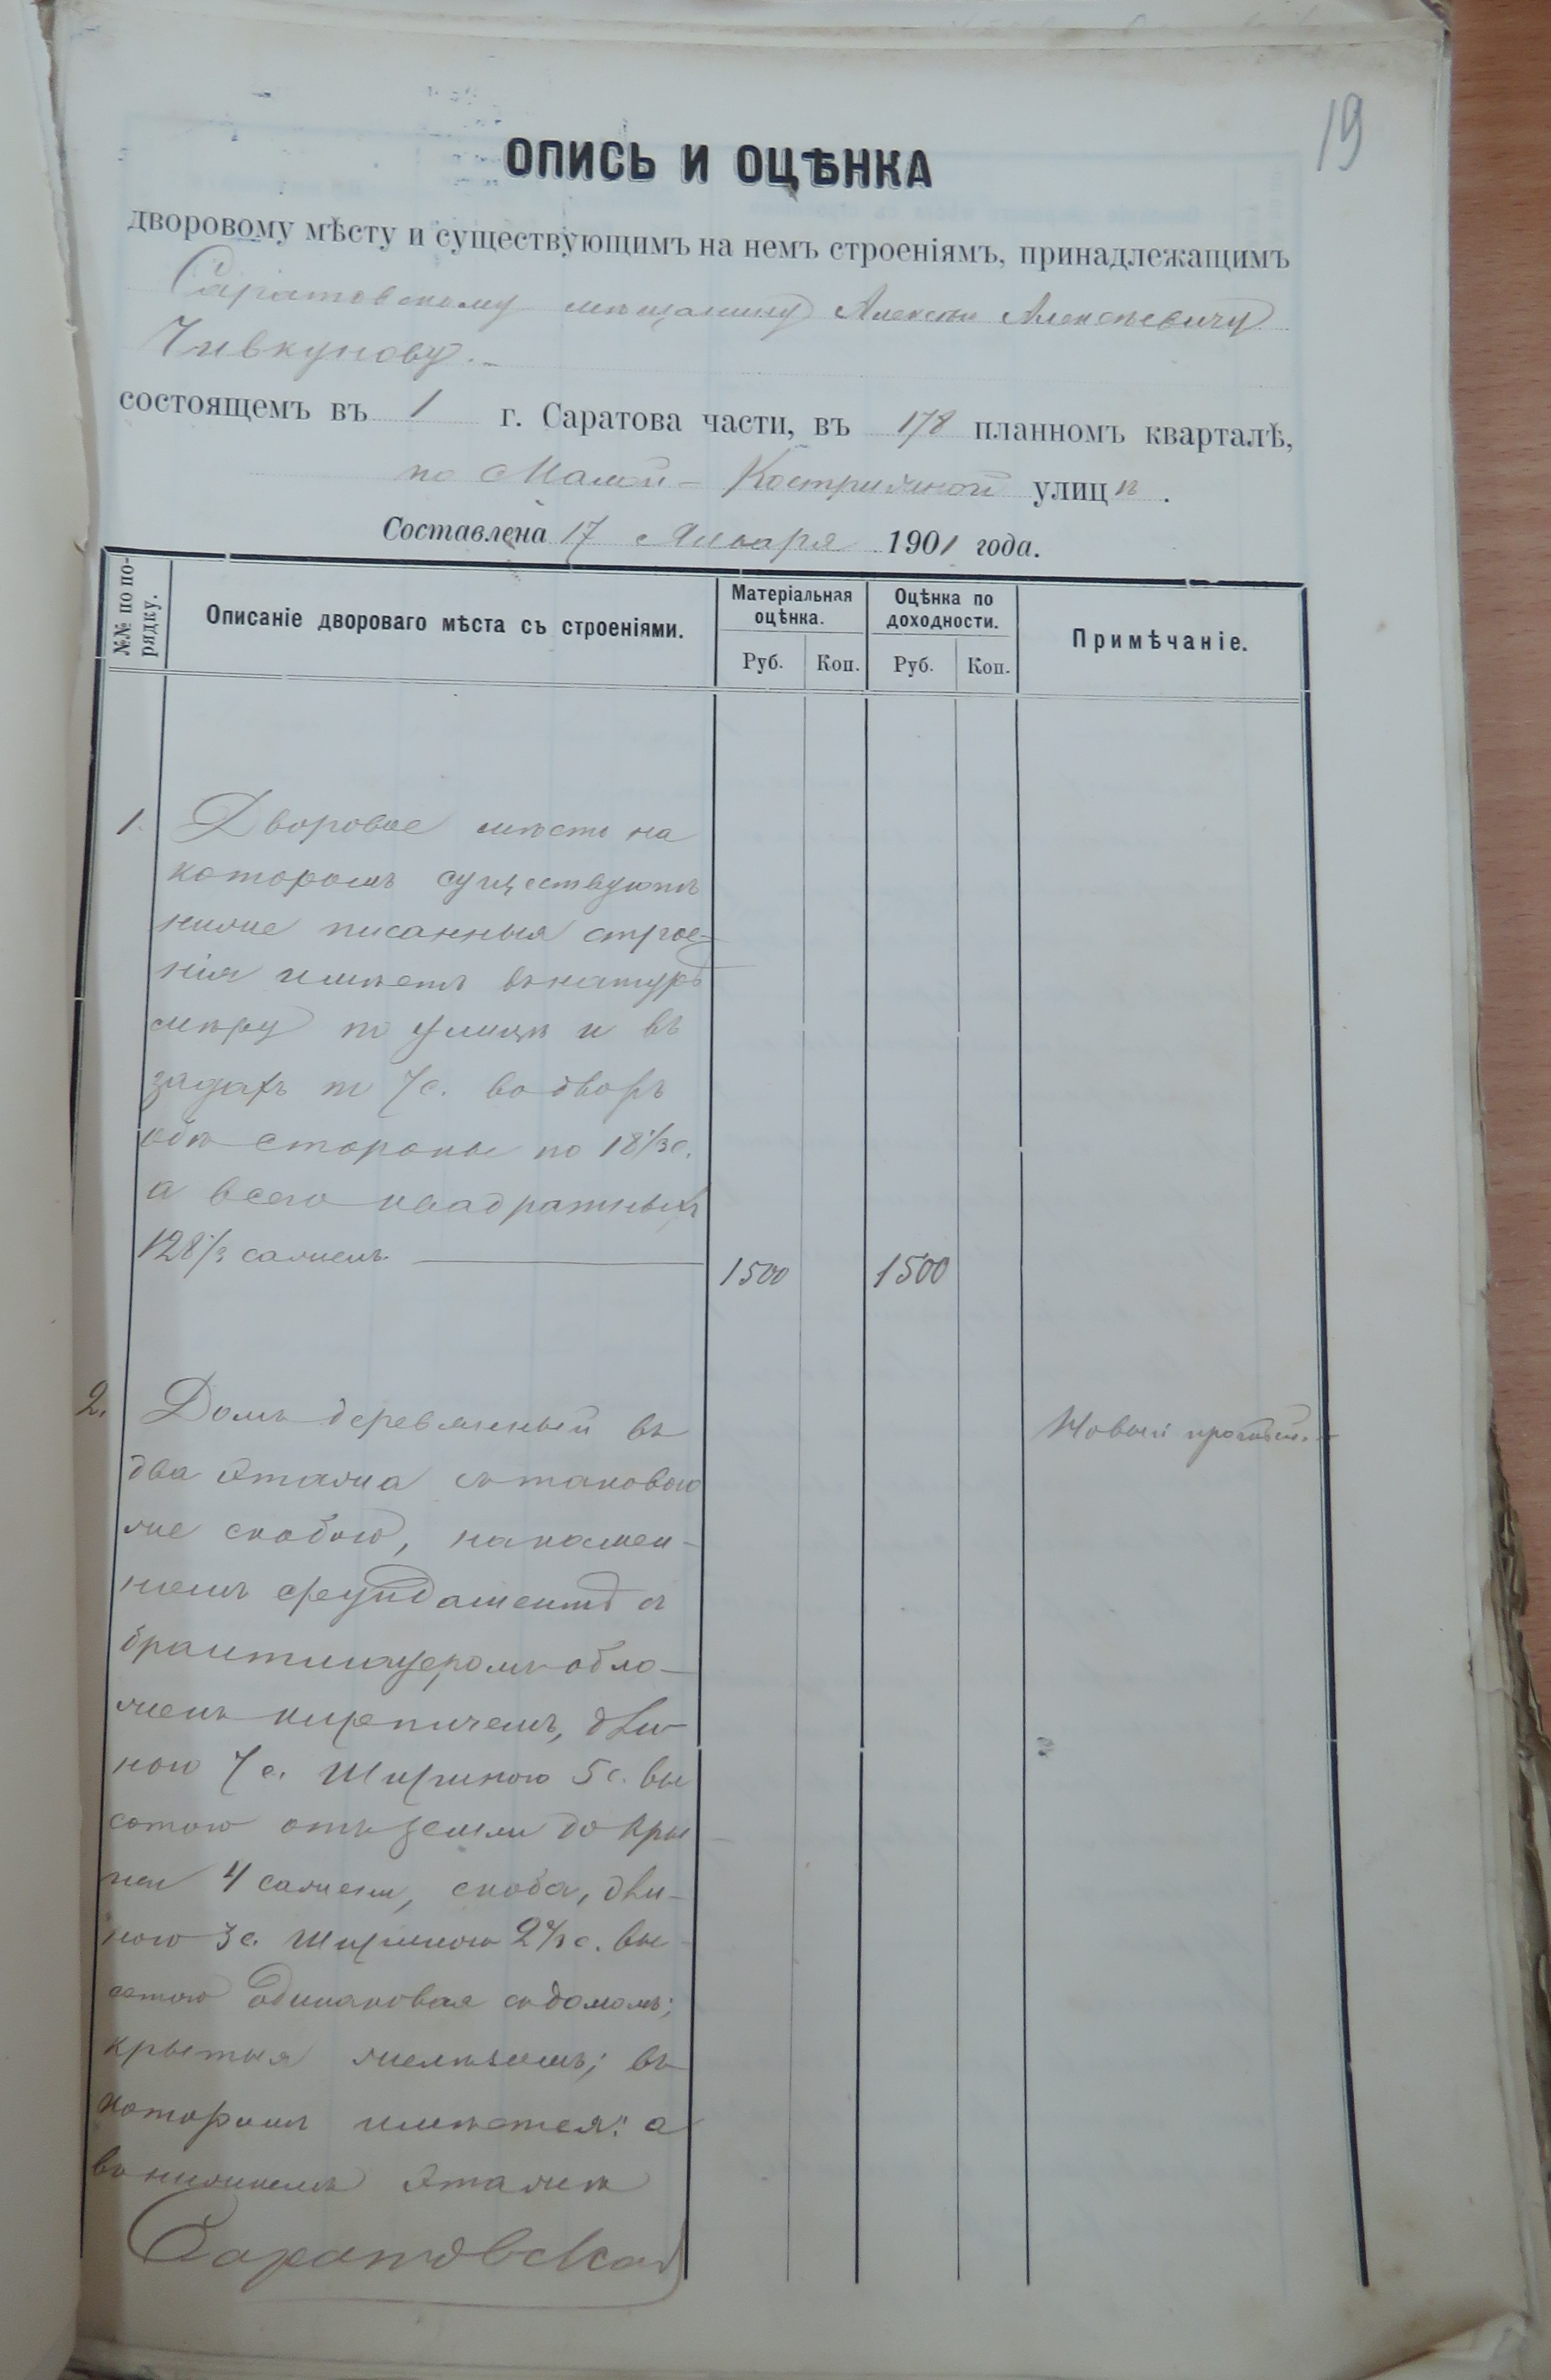 19
ОПИСЬ И ОЦѢНКА
дворовому мѣсту и существующимъ на немъ строеніямъ, принадлежащимъ
Саратовскому мѣщанину Алексѣю Алексѣевичу
Чивкунову.
состоящемъ въ 1 г. Саратова части, въ 178 планномъ кварталѣ,
по Малой-Кострижной улицѣ.
Составлена 17 Января 1901 года.
№№ по по-
рядку.
Описаніе двороваго мѣста съ строеніями.
Матеріальная
оцѣнка.
Оцѣнка по
доходности.
Примѣчаніе.
Руб. Коп. Руб. Коп.
1. Дворовое мѣсто на
которомъ существуютъ
ниже писанныя строе-
нія имѣетъ въ натурѣ
мѣру по улицѣ и въ
задахъ по 7 с. во дворъ
обѣ стороны по 18 1/3 с.
а всего квадратныхъ
128 1/3 сажень 1500 1500
2. Домъ деревянный въ
два этажа съ таковою
же скобою, на камен-
номъ фундаментѣ съ
брантмауеромъ обло-
женъ кирпичемъ, дли-
ною 7 с. шириною 5 с. вы
сотою отъ земли до кры
ши 4 сажени, скоба, дли-
ною 3 с. шириною 2 2/3 с. вы-
сотою одинаковая съ домомъ;
крытыя желѣзомъ; въ
которомъ имѣется: а
въ нижнемъ этажѣ
Новый прочный.
Саратовская